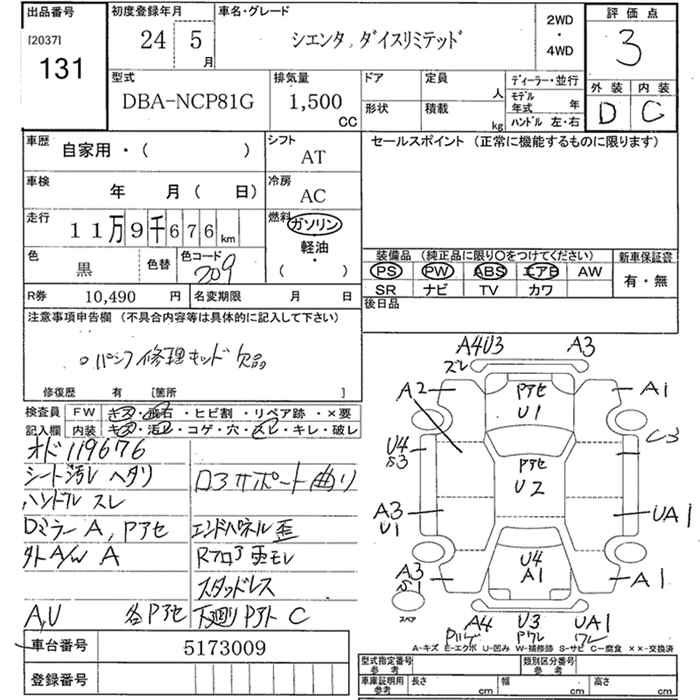 出品番号
[2037]
131
初度登録年月
24 5 月
車名・グレード
シエンタ, ダイスリミテッド
2WD
・
4WD
評価点
3
外装 内装
D C
型式
DBA-NCP81G
排気量
1,500
CC
ドア
形状
定員
人
積載
kg
ディーラー・並行
モデル
年式 年
ハンドル 左・右
車歴
自家用・( )
シフト
AT
車検
年 月( 日)
冷房
AC
走行
11万9千676 km
燃料
ガソリン
軽油
・
( )
色
黒
色替
色コード
209
R券
10,490 円
名変期限 月 日
セールスポイント (正常に機能するものに限ります)
装備品 (純正品に限り○をつけてください)
PS PW ABS エアB AW
SR ナビ TV カワ
新車保証書
有・無
後日品
注意事項申告欄 (不具合内容等は具体的に記入して下さい)
パンク修理キッド欠品
修復歴 有 [箇所 ]
検査員
記入欄
FW キズ・飛石・ヒビ割・リペア跡・×要
内装 キズ・汚レ・コゲ・穴・スレ・キレ・破レ
オド119676
シート汚レ ヘタリ
ハンドル スレ
Dミラー A, Pアセ
外A/W A
A,U 各Pアセ
ロアサポート曲り
エンドパネル歪
Rフロア歪モレ
スタッドレス
下廻りPアト C
A4U3
ズレ
A3
A2
Pアセ
U1
A1
U4
C3
Pアセ
U2
A3
U1
UA1
A3
U4
A1
A1
スペア
A4
U3
Pワレ
UA1
ワレ
A-キズ E-エクボ U-凹み W-補修跡 S-サビ C-腐食 ××-交換済
車台番号
5173009
登録番号
型式指定番号
参考
類別区分番号
参考
車庫証明用
参考
長さ cm
幅 cm
高さ cm